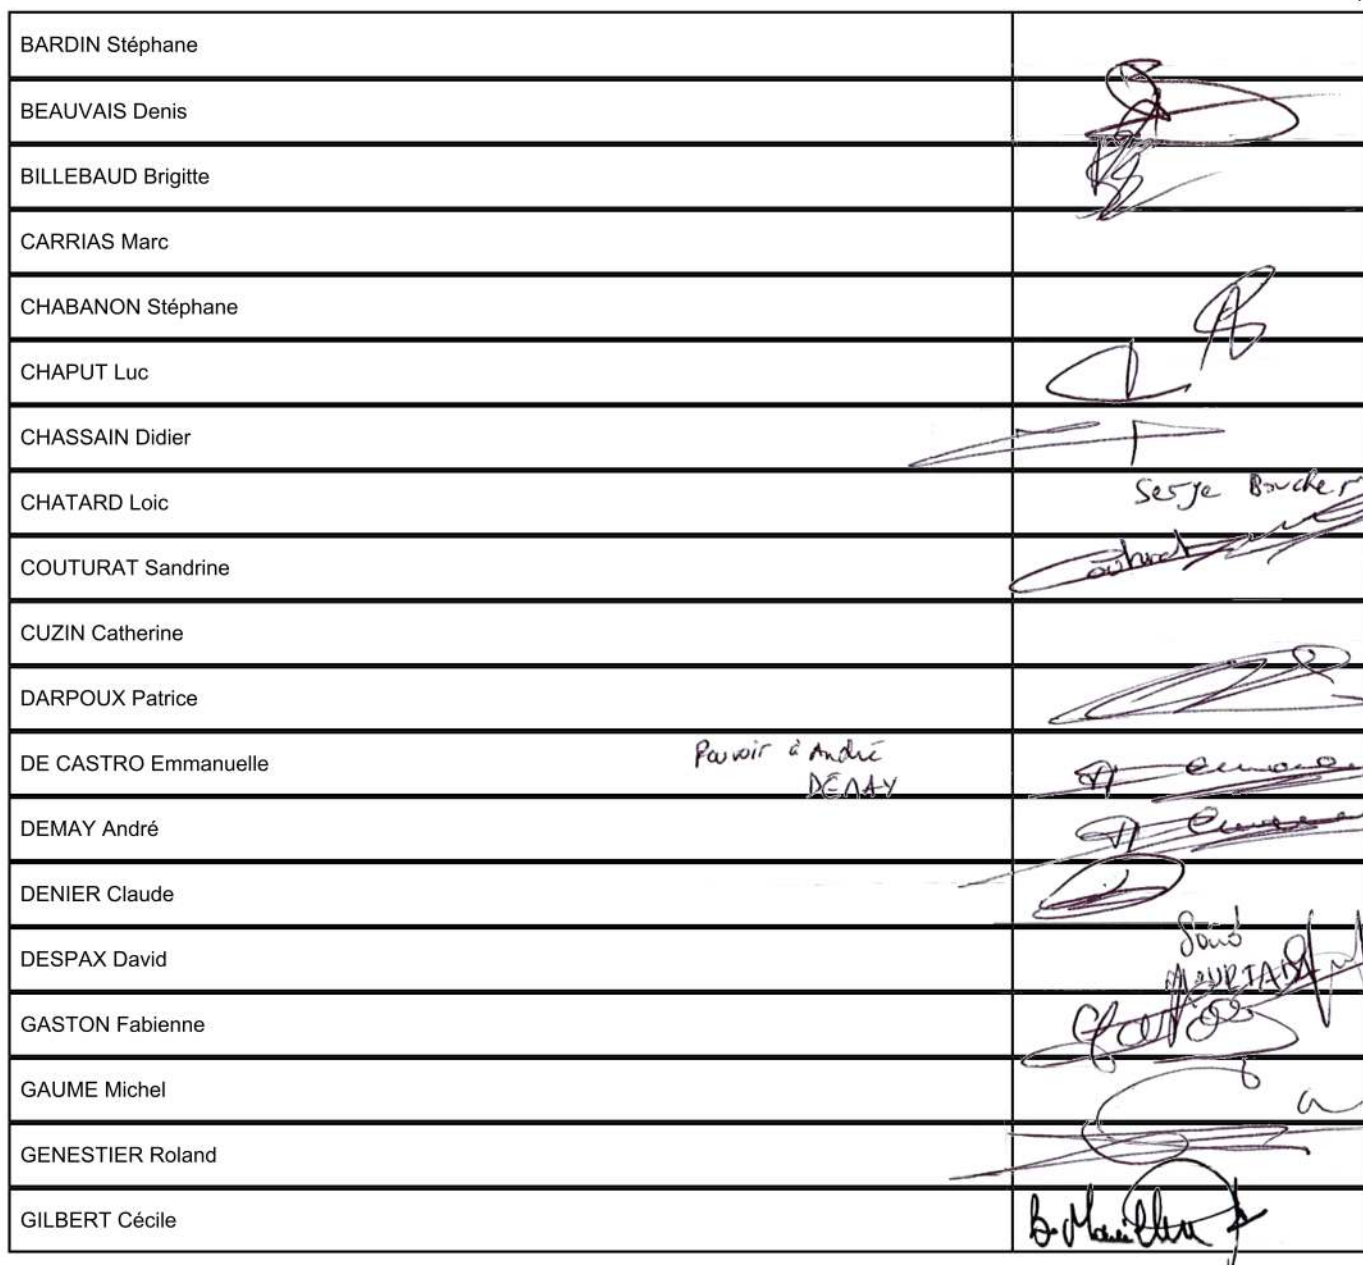 BARDIN Stéphane
BEAUVAIS Denis
BILLEBAUD Brigitte
CARRIAS Marc
CHABANON Stéphane
CHAPUT Luc
CHASSAIN Didier
CHATARD Loic
Serge Boucher
COUTURAT Sandrine
Couturat
CUZIN Catherine
DARPOUX Patrice
DE CASTRO Emmanuelle
Pouvoir à André
DEMAY
DEMAY André
DENIER Claude
DESPAX David
GASTON Fabienne
GAUME Michel
GENESTIER Roland
GILBERT Cécile